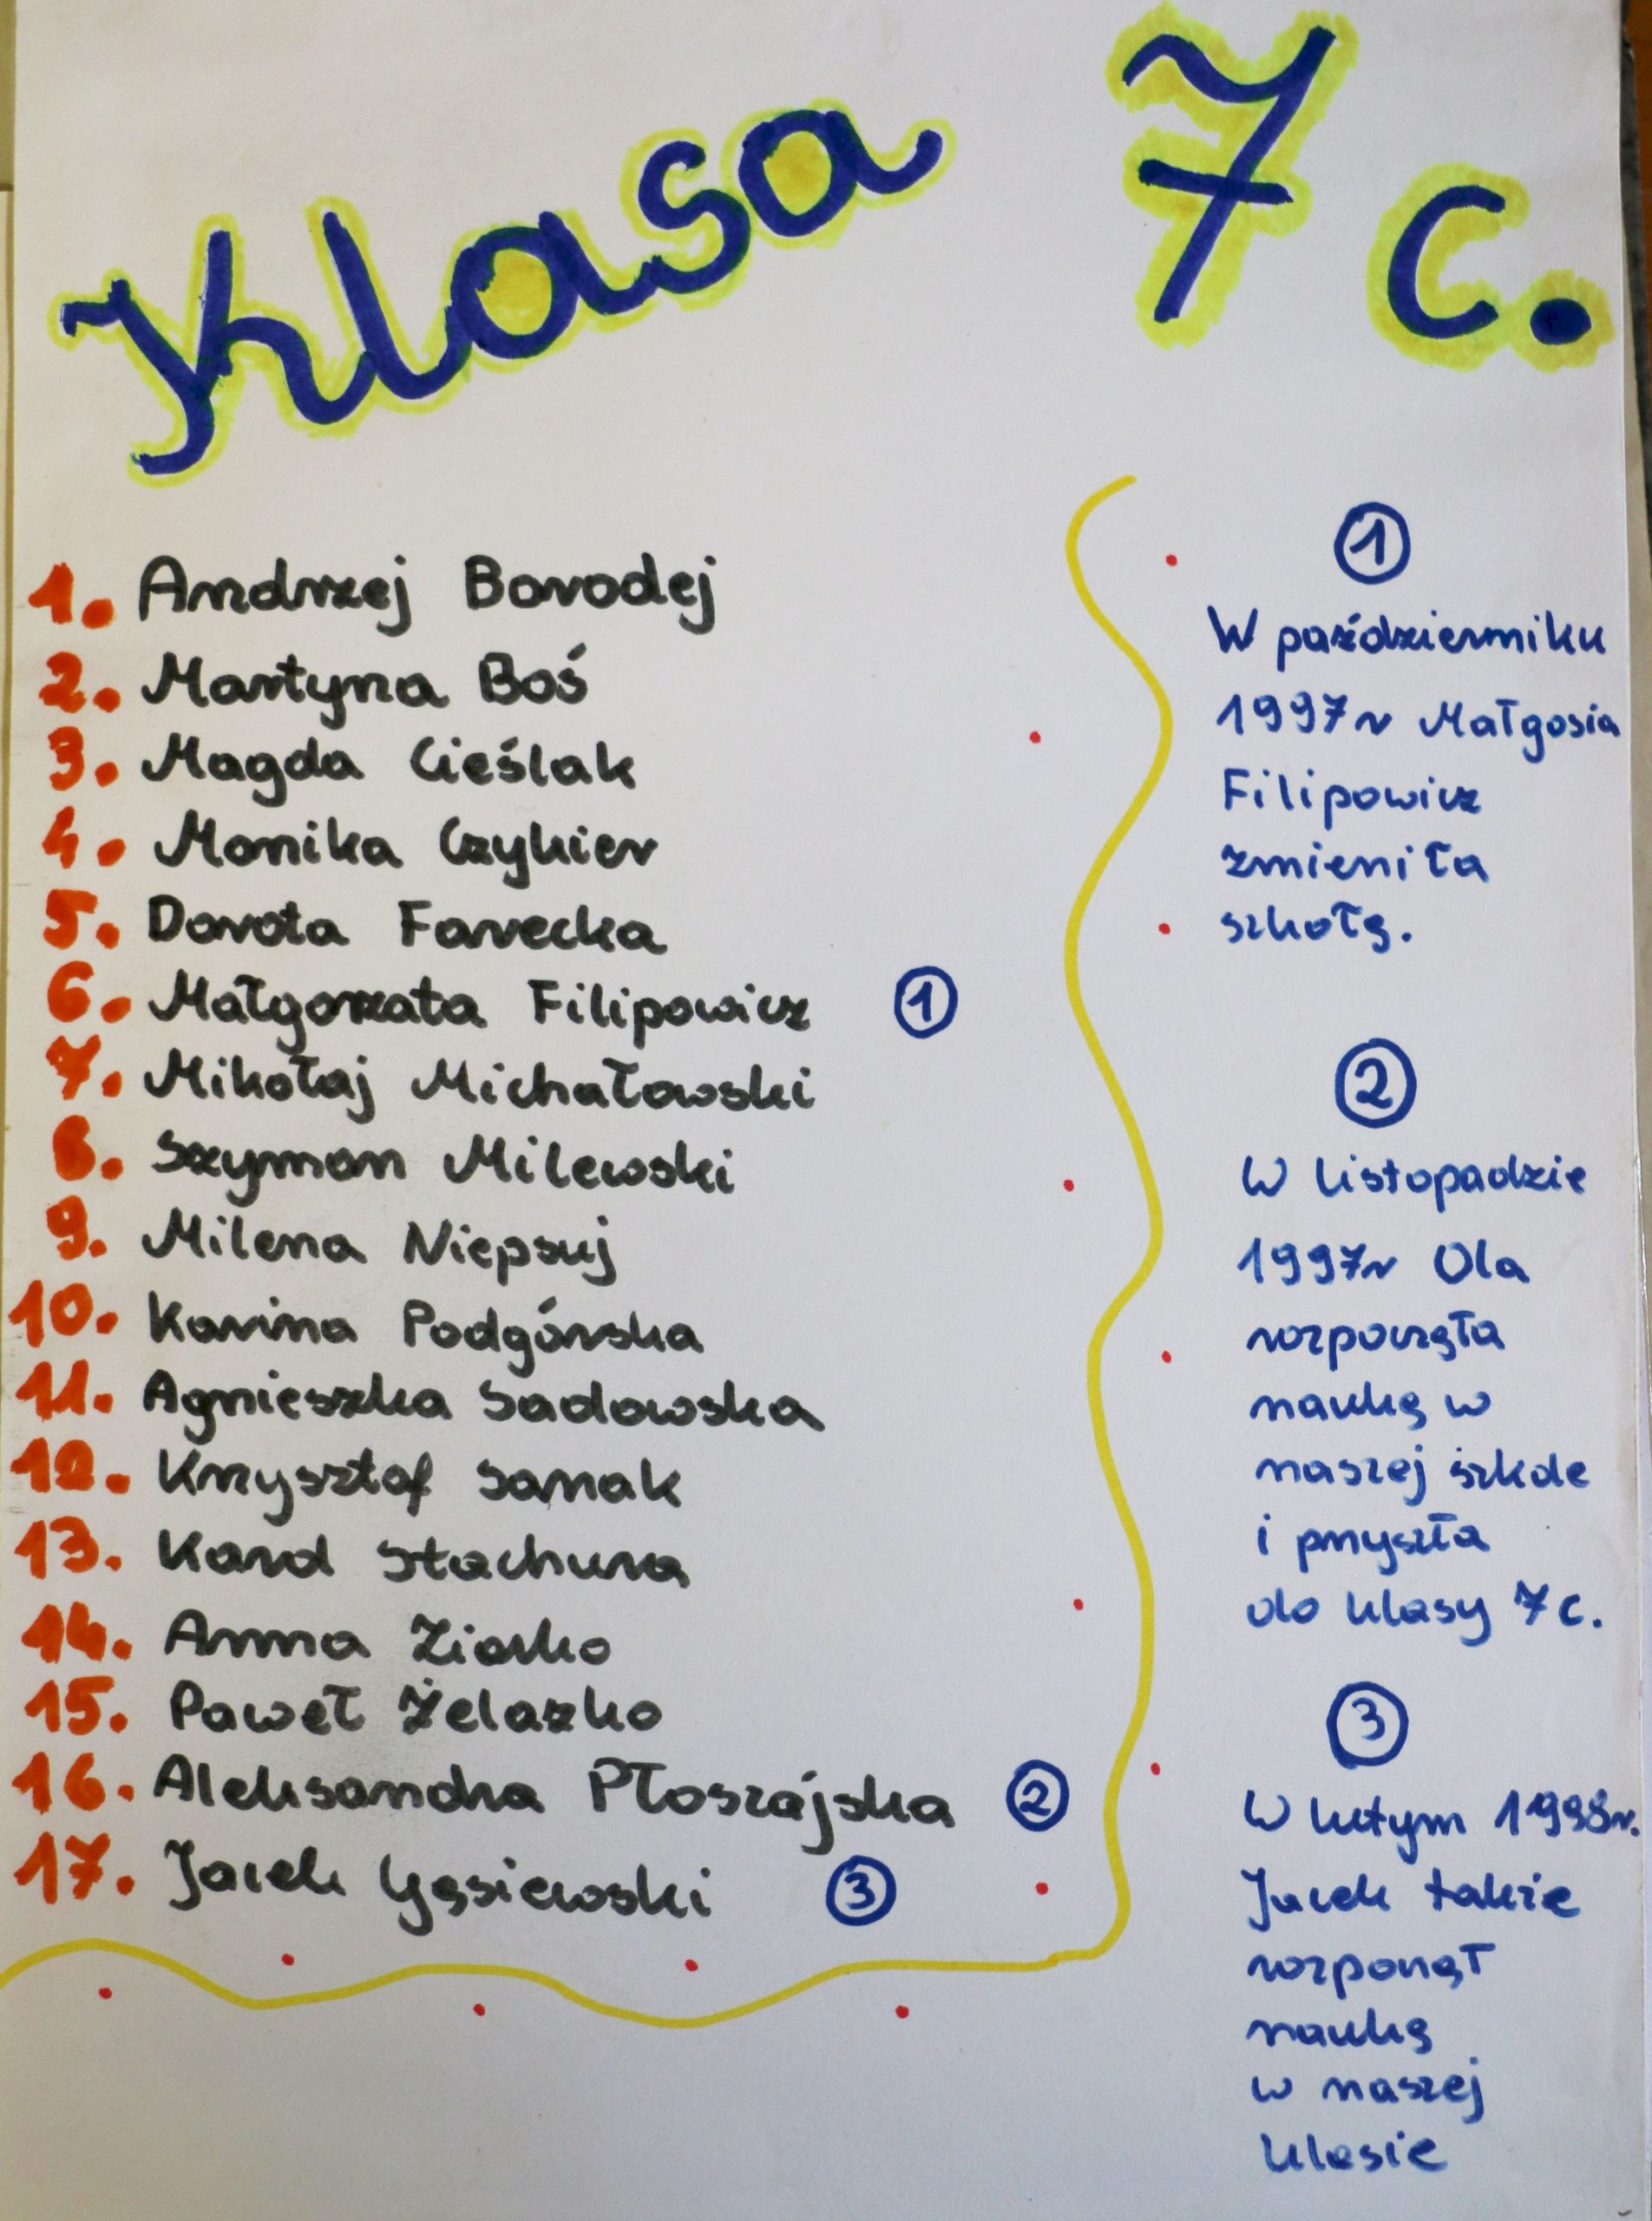 Klasa 7 c.
1. Andrzej Borodej
2. Martyna Boś
3. Magda Cieślak
4. Monika Czykier
5. Dorota Farecka
6. Małgorzata Filipowicz 1
7. Mikołaj Michałowski
8. Szymon Milewski
9. Milena Niepsuj
10. Karina Podgórska
11. Agnieszka Sadowska
12. Krzysztof Sanak
13. Karol Stachura
14. Anna Ziarko
15. Paweł Żelazko
16. Aleksandra Płoszajska 2
17. Jacek Gąsiewski 3
1
W październiku
1997r Małgosia
Filipowicz
zmieniła
szkołę.
2
W listopadzie
1997r Ola
rozpoczęła
naukę w
naszej szkole
i przyszła
do klasy 7c.
3
W lutym 1998r.
Jacek także
rozpoczął
naukę
w naszej
klasie